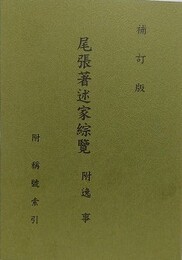 補訂版
尾張著述家綜覽 附逸事
附 稱號索引